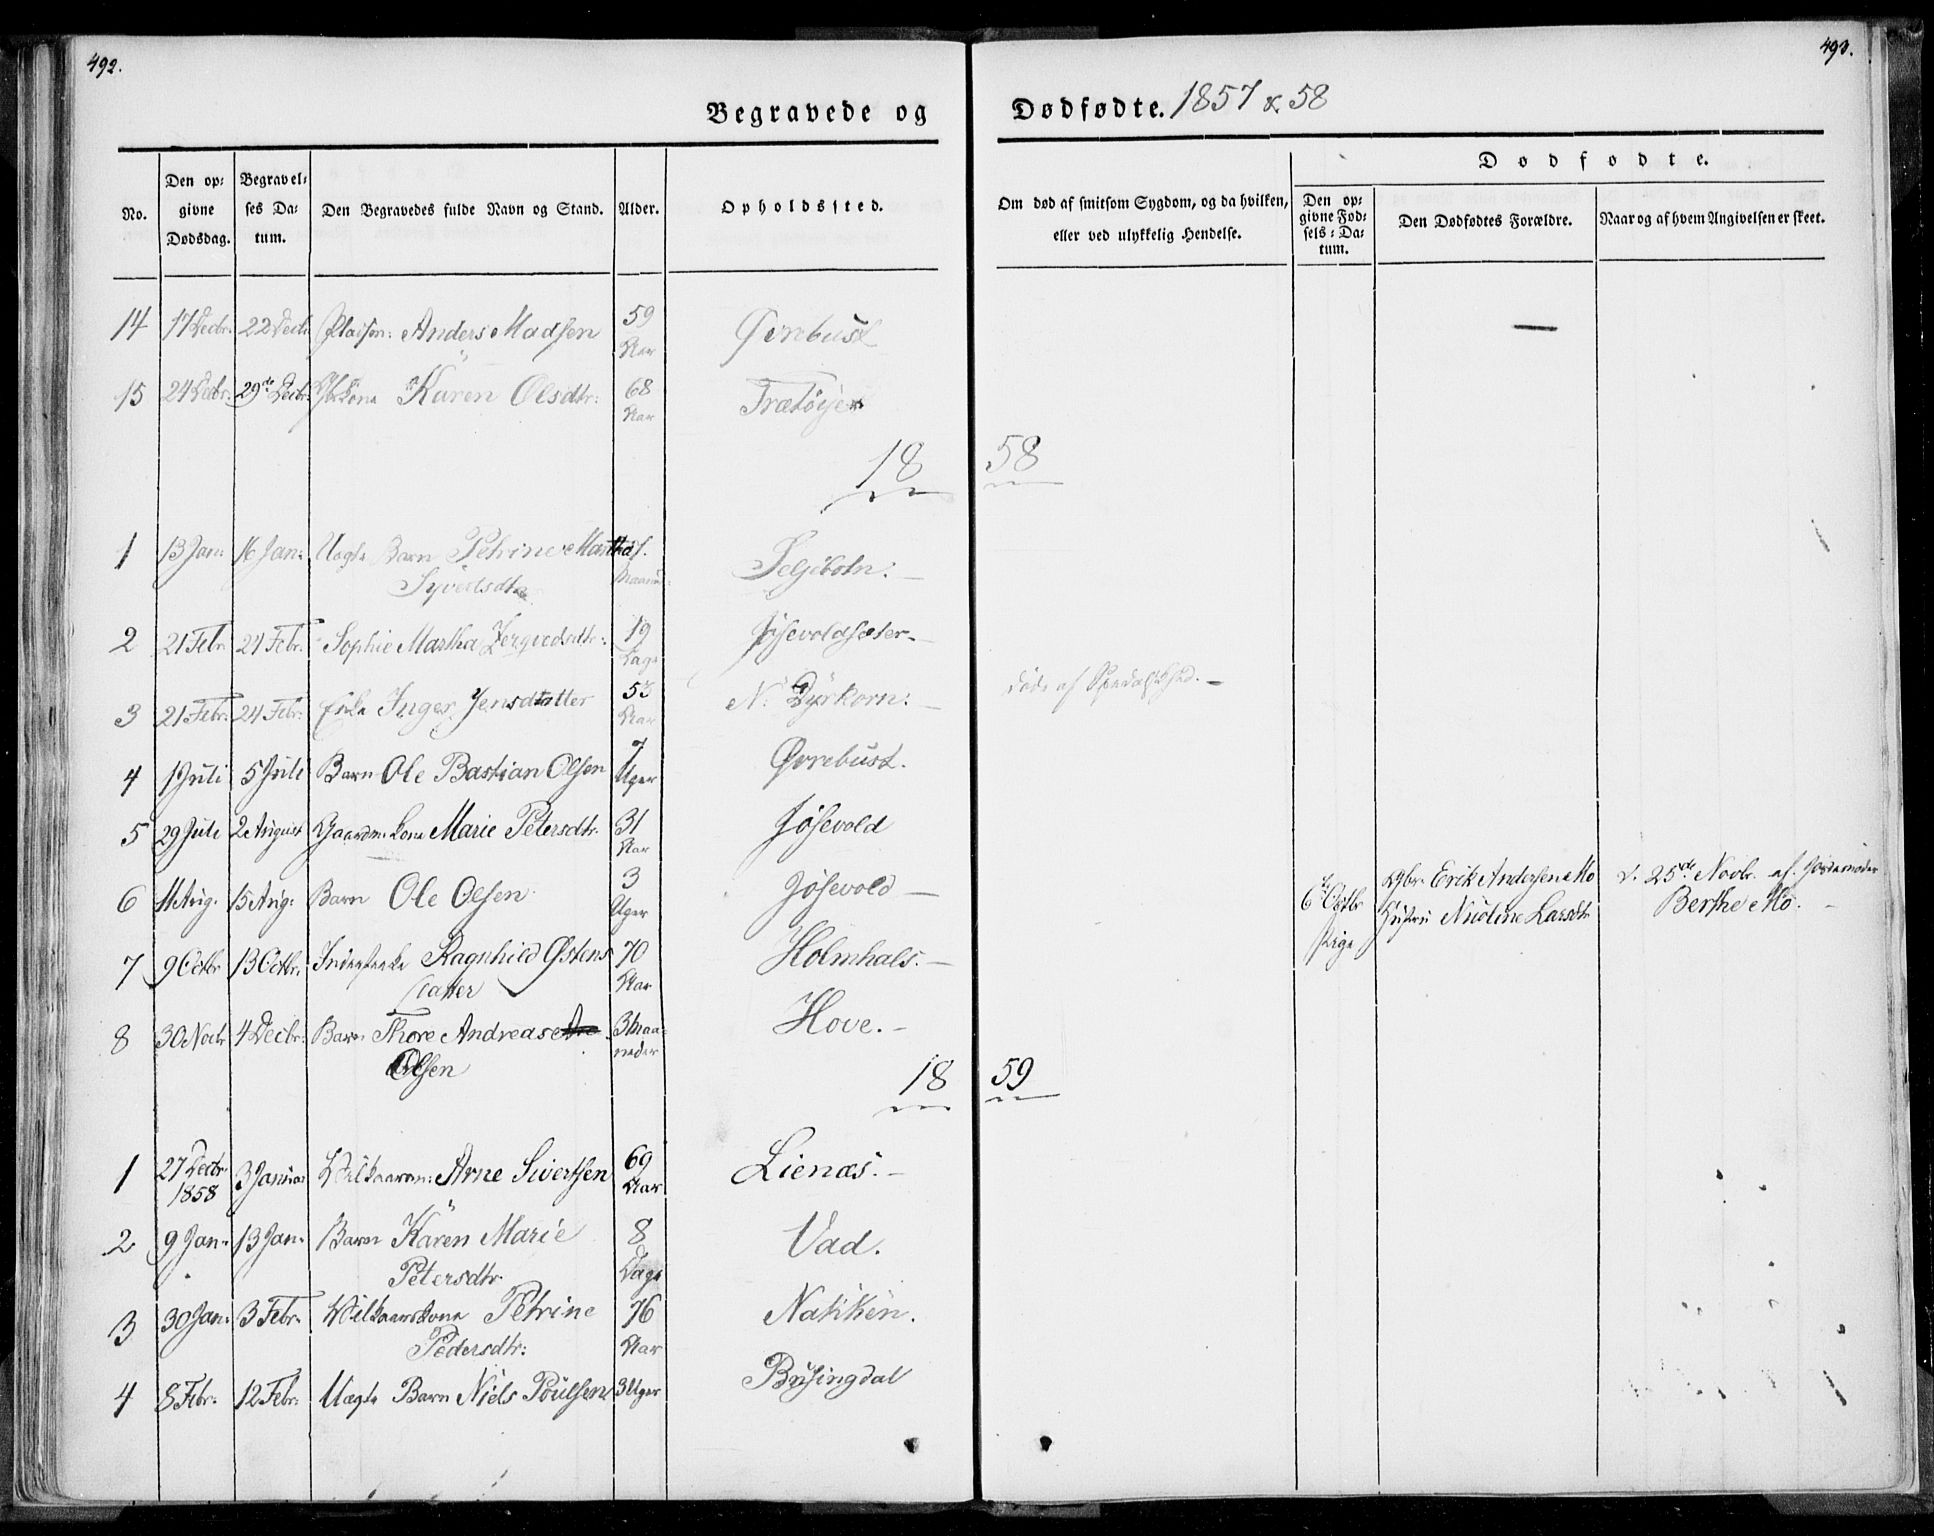 492.
493.
Begravede og Dødfødte. 1857 & 58
No.
Den op: givne Dødsdag.
Begravel: ses Da: tum.
Den Begravedes fulde Navn og Stand.
Alder.
Opholdssted.
Om død af smitsom Sygdom, og da hvilken, eller ved ulykkelig Hendelse.
Dødfødte.
Den op: givne Fød: sels: Da: tum.
Den Dødfødtes Forældre.
Naar og af hvem Angivelsen er skeet.
14 17 Decbr. 22 Decbr. Anders Madsen 59 Aar —
15 24 Decbr: 29de Decbr: Karen Olsdtr: 68 Aar
18 58
1 13 Jan: 16 Jan: Uægte Barn Petrine Martha
Syvertsdtr
2 21 Febr 24 Febr. Sophie Martha 19 Dage
3 21 Febr: 24 Febr: Enke Inger Jensdatter 53 Aar N: Dyrkorn: — døde af Spedalskhed. —
4 1 Juli 5 Juli Barn Ole Bastian Olsen 7 Uger Øvrebust.
5 29 Juli 2 August Gaardm: Kone Marie Petersdtr. 31 Aar Jøsevold
6 11 Aug. 15 Aug: Barn Ole Olsen 3 Uger Jøsevold —
6te Octbr Pige Erik Andersen Mo d. 25de Novbr. af Jordemoder
Hustru Nicoline Larsdtr Berthe Mo. —
7 9 Octbr 13 Octbr. Ragnhild Østens 70 Aar Holmhals. —
datter
8 30 Novbr 4 Decbr: Barn Thore Andreas 3 Maa: neder Hove. —
Olsen
18 59
1 27 Decbr 1858 3 Januar Vilkaarm: Arne Sivertsen 69 Aar Lienæs. —
2 9 Jan: 13 Jan: Barn Karen Marie 8 Dage Vad.
Petersdtr.
3 30 Jan: 3 Febr. Vilkaarskone Petrine 76 Aar Nakken.
Pedersdtr:
4 8 Febr. 12 Febr: Uægte Barn Niels Poulsen 3 Uger Brusingdal